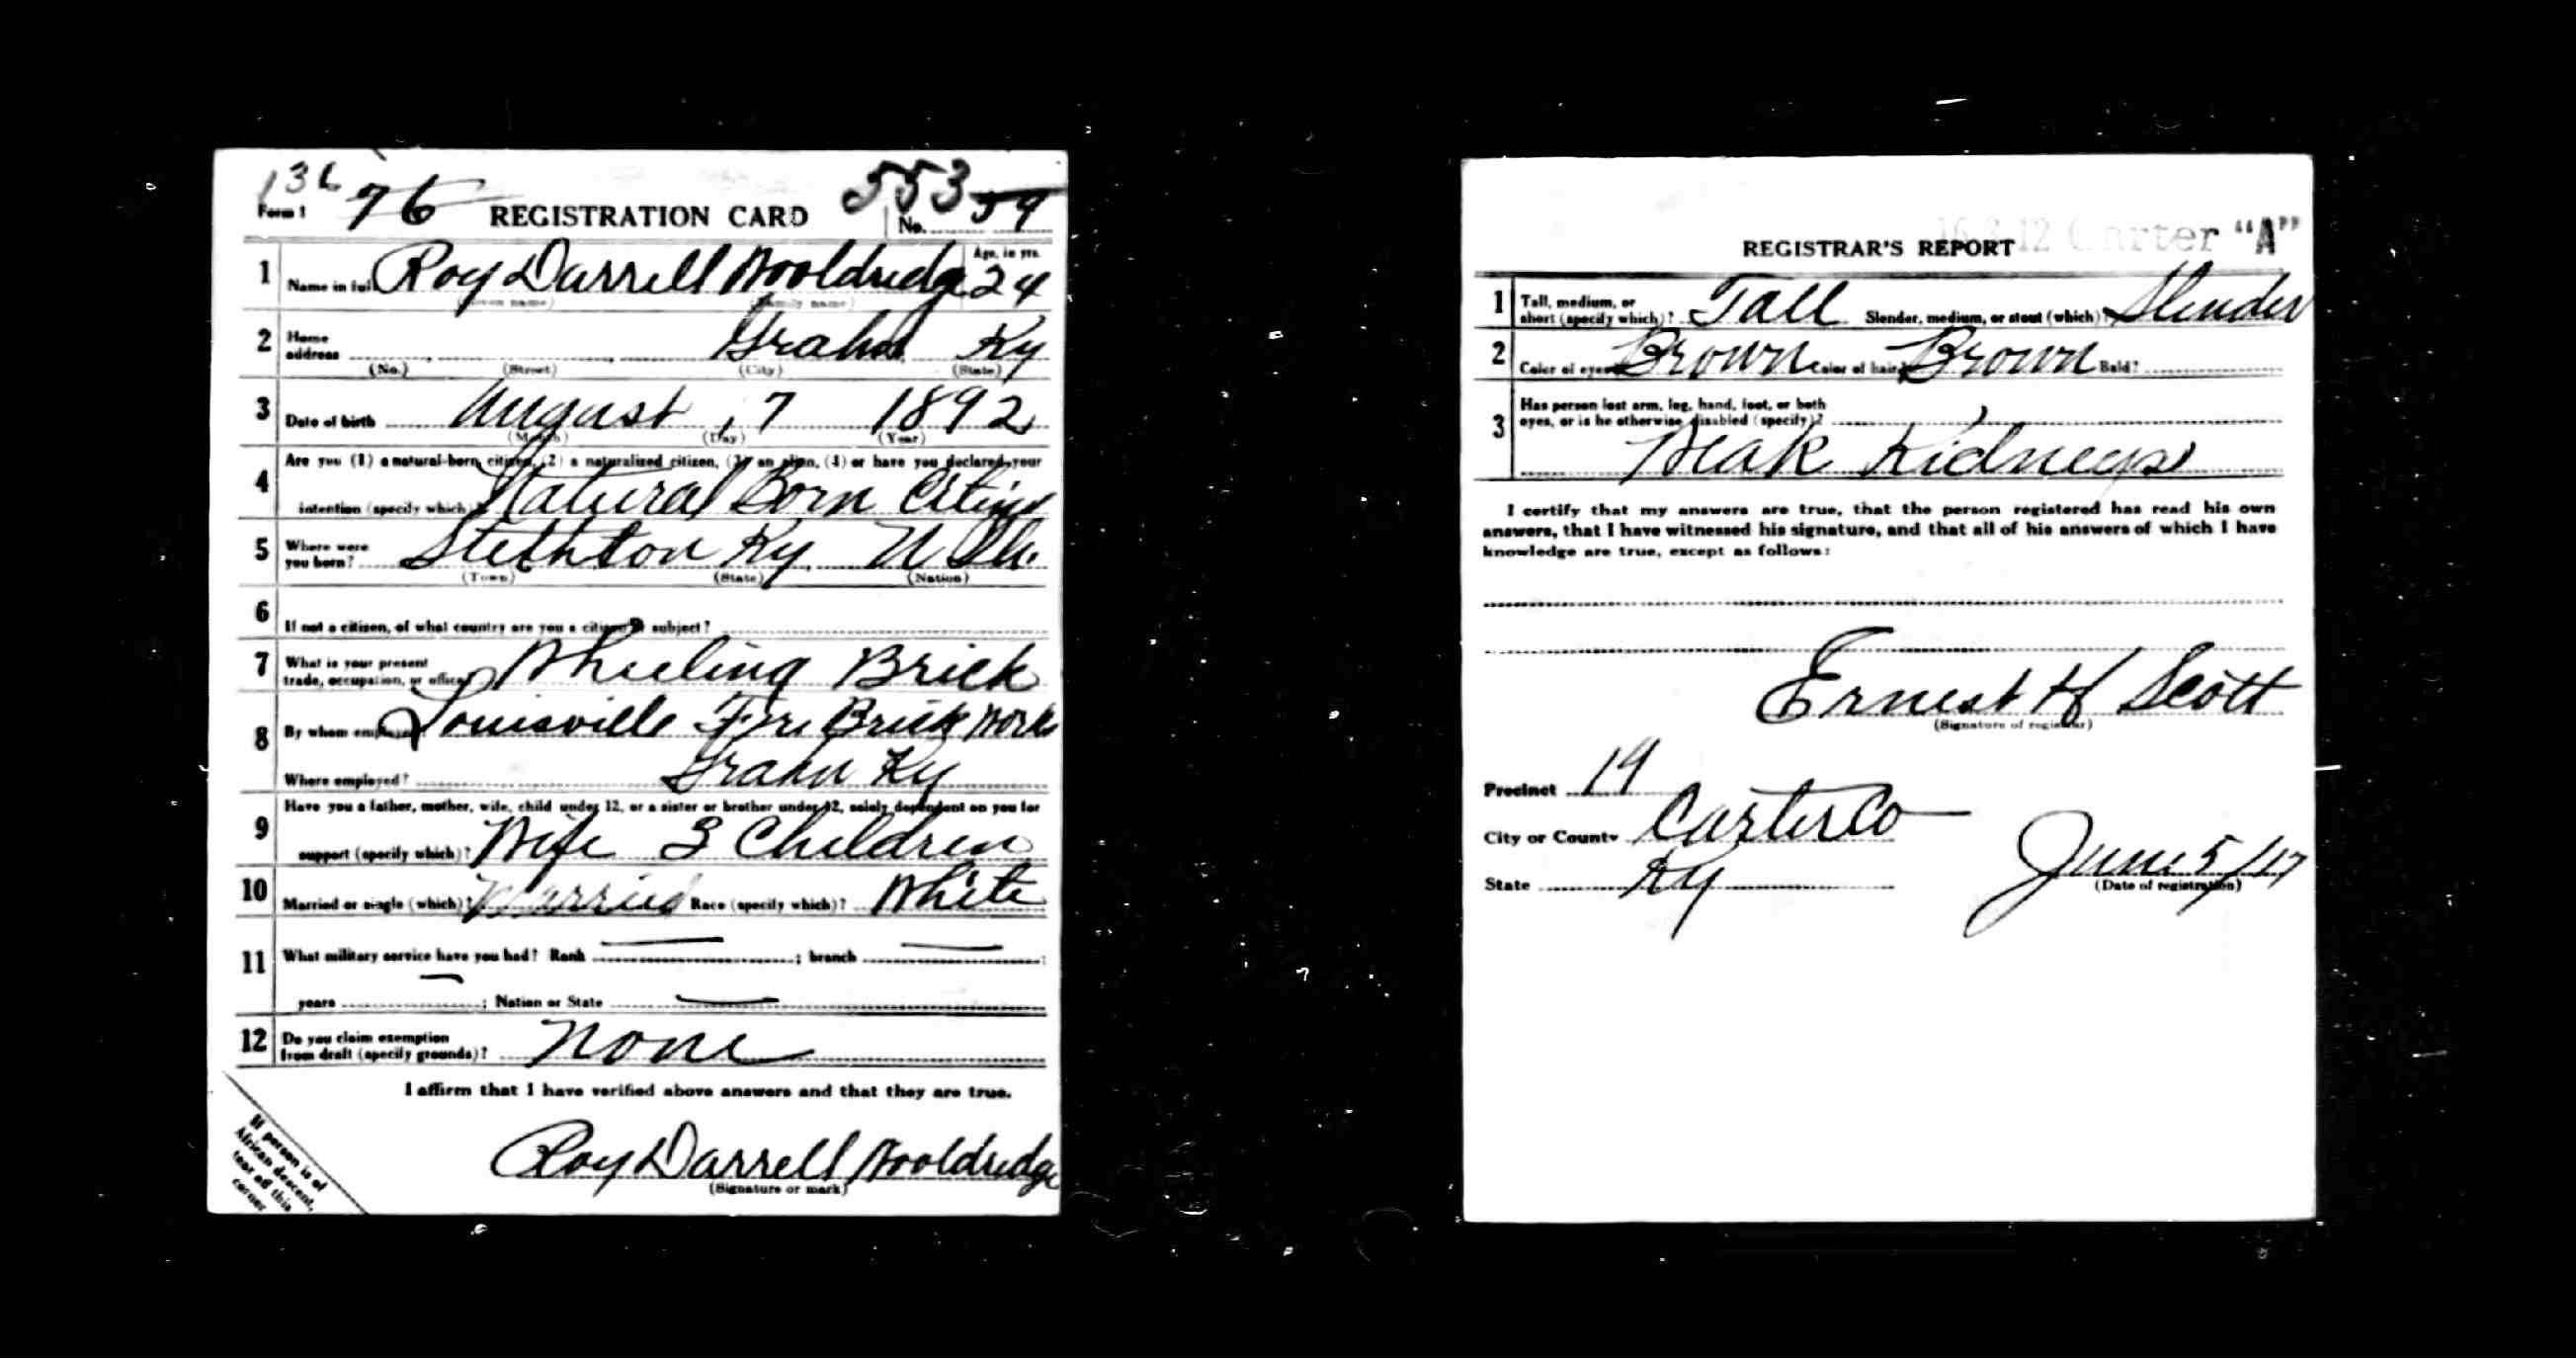 136
76
553
Form 1 REGISTRATION CARD No. 59
1 Name in full Roy Darrell Wooldridge Age, in yrs. 24
(Given name) (Family name)
2 Home address Grahn Ky
(No.) (Street) (City) (State)
3 Date of birth August 7 1892
(Month) (Day) (Year)
4 Are you (1) a natural-born citizen, (2) a naturalized citizen, (3) an alien, (4) or have you declared your
intention (specify which)? Natural Born Citizen
5 Where were you born? Stethton Ky. U.S.A.
(Town) (State) (Nation)
6 If not a citizen, of what country are you a citizen or subject?
7 What is your present trade, occupation, or office? Wheeling Brick
8 By whom employed? Louisville Fire Brick Works
Where employed? Grahn Ky
9 Have you a father, mother, wife, child under 12, or a sister or brother under 12, solely dependent on you for
support (specify which)? Wife 3 Children
10 Married or single (which)? Married Race (specify which)? White
11 What military service have you had? Rank ; branch ;
years ; Nation or State
12 Do you claim exemption from draft (specify grounds)? None
I affirm that I have verified above answers and that they are true.
Roy Darrell Wooldridge
(Signature or mark)
If person is of
African descent,
tear off this
corner
Carter "A"
REGISTRAR'S REPORT
1 Tall, medium, or short (specify which)? Tall Slender, medium, or stout (which)? Slender
2 Color of eyes Brown Color of hair Brown Bald?
3 Has person lost arm, leg, hand, foot, or both
eyes, or is he otherwise disabled (specify)?
Weak Kidneys
I certify that my answers are true, that the person registered has read his own
answers, that I have witnessed his signature, and that all of his answers of which I have
knowledge are true, except as follows:
Ernest H Scott
(Signature of registrar)
Precinct 19
City or County Carter Co
State Ky
June 5/17
(Date of registration)